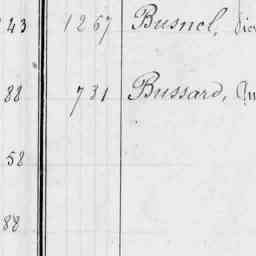 43 1267 Busnel,
88 731 Bussard,
58
88